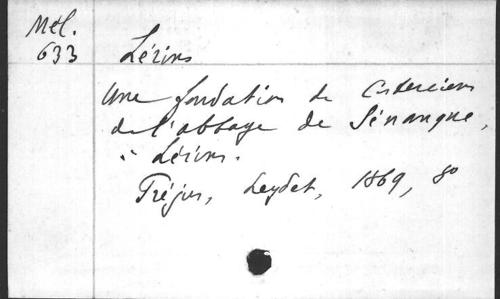 Mél.
633
Lérins
Une fondation de Cisterciens
de l'abbaye de Sénanque,
à Lérins.
Fréjus, Leydet, 1869, 8º